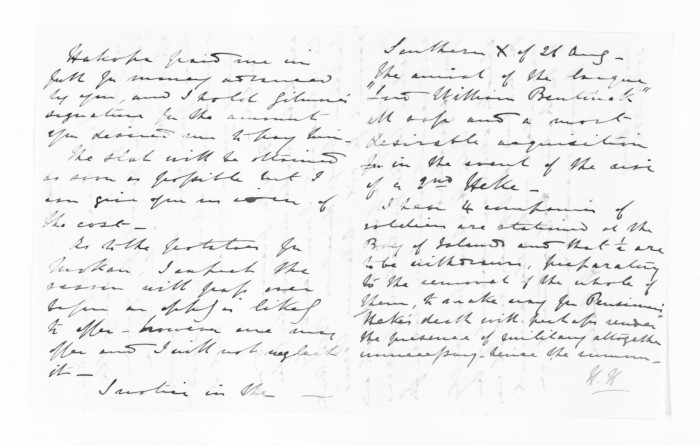 Hakopa paid me in
full for money advanced
by you and I hold Gilmour's
signature for the amount
you desired me to pay him -
The slab will be obtained
as soon as possible but I
can give you no idea of
the cost -
As to the potatoes for
I expect the
season will pass over
before an oppy is likely
to offer - however one may
offer and I will not neglect
it -
I notice in the
Southern X of 26 Aug -
The arrival of the barque
"Lord William Bentinck"
all safe and a most
desirable acquisition
in the event of the rise
of a 2nd Heke -
I hear 4 companies of
soldiers are stationed at the
Bay of Islands and that ½ are
to be withdrawn, preparatory
to the removal of the whole of
them, to make way for Pensioners
Heke's death will perhaps render
the presence of military altogether
unnecessary hence the
H. H